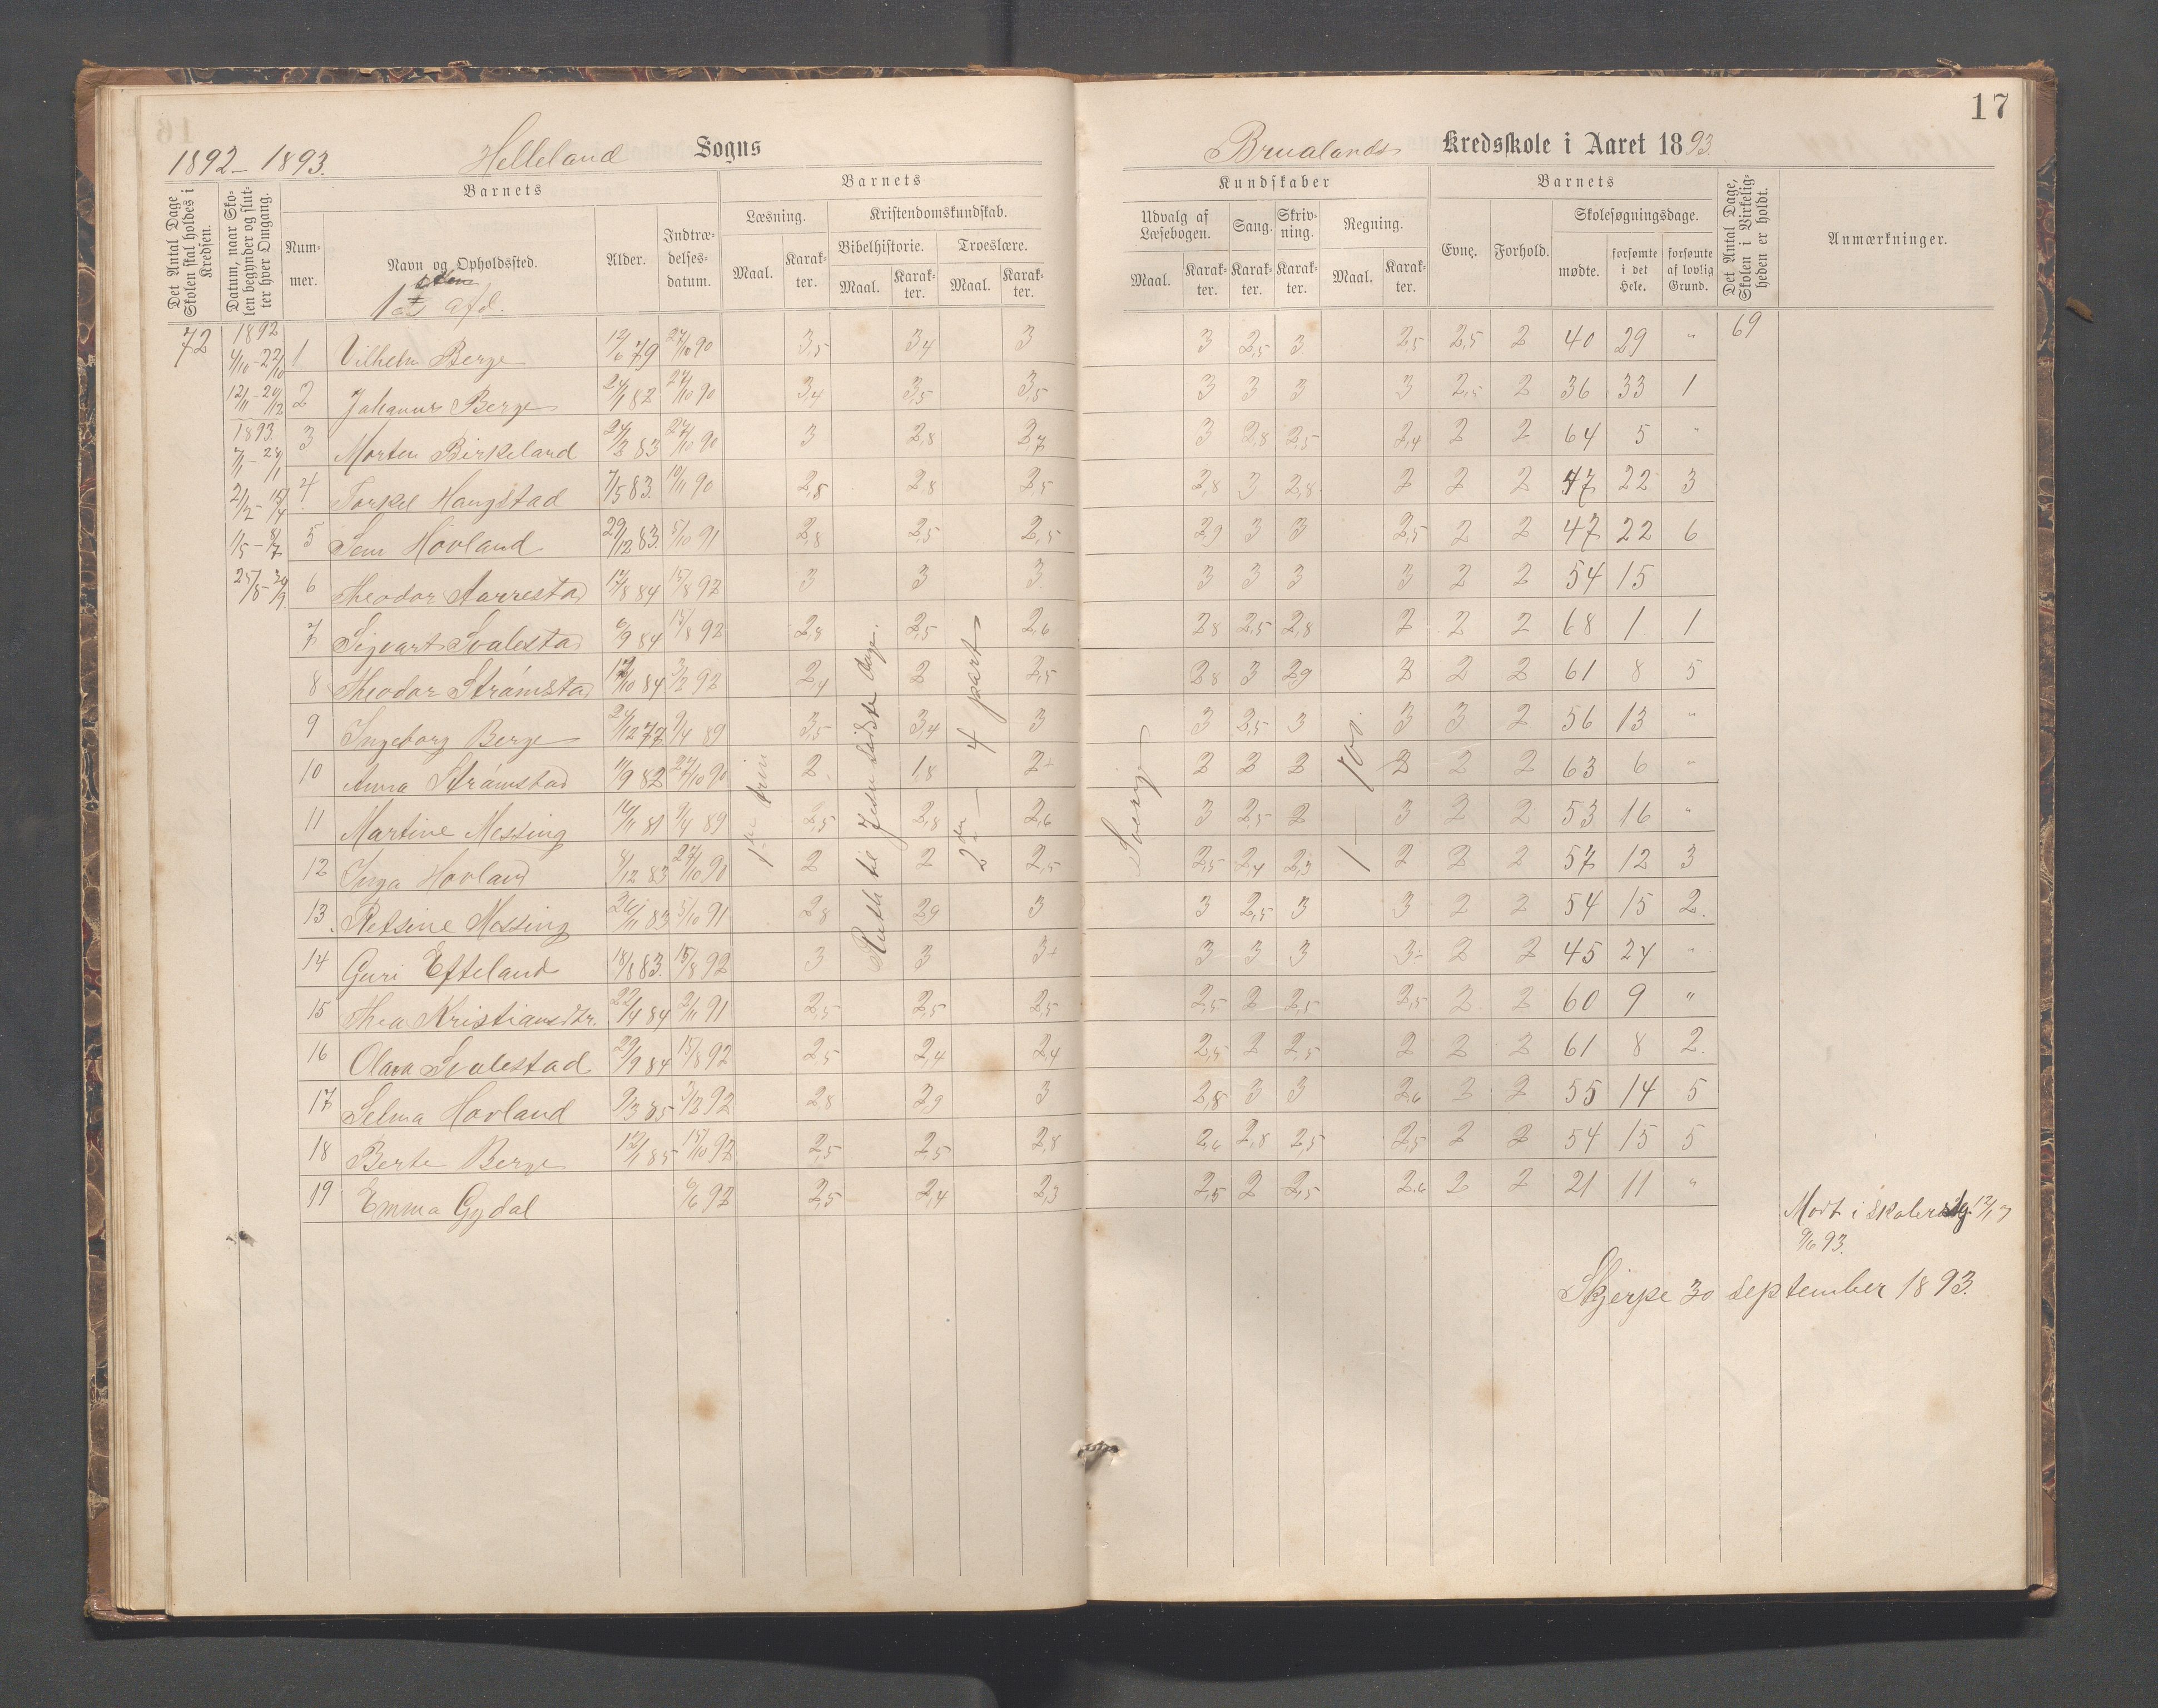 17
1892–1893. Helleland Sogns Brualands Kredsskole i Aaret 1893.
Det Antal Dage Skolen skal holdes i Kredsen.
Datum, naar Skolen begynder og slutter hver Omgang.
Barnets
Nummer.
Navn og Opholdssted.
1ste afd.
Alder.
Indtrædelsesdatum.
Barnets
Læsning.
Maal.
Karakter.
Kristendomskundskab.
Bibelhistorie.
Maal.
Karakter.
Troeslære.
Maal.
Karakter.
Kundskaber
Udvalg af Læsebogen.
Maal.
Karakter.
Sang.
Karakter.
Skrivning.
Karakter.
Regning.
Maal.
Karakter.
Barnets
Evne.
Forhold.
Skolesøgningsdage.
mødte.
forsømte i det Hele.
forsømte af lovlig Grund.
Det Antal Dage, Skolen i Virkeligheden er holdt.
Anmærkninger.
72 1892 4/10–22/10 69
1 Vilhelm Berge 12/6 79 27/10 90 3,5 3,4 3 3 2,5 3 2,5 2,5 2 40 29 "
2 Johannes Berge 24/1 82 27/10 90 3,4 3,5 3,5 3 3 3 3 2,5 2 36 33 1
1893.
3 Morten Birkeland 24/2 83 27/10 90 3 2,8 2,7 3 2,8 2,5 2,4 2 2 64 5 "
4 Torkel Haugstad 7/5 83. 10/11 90 2,8 2,8 2,5 2,8 3 2,8 2 2 2 47 22 3
5 Sem Hovland 29/12 83. 5/10 91 2,8 2,5 2,5 2,9 3 3 2,5 2 2 47 22 6
6 Theodor Aarrestad 12/8 84 15/8 92 3 3 3 3 3 3 3 2 2 54 15
7 Sigvart Svalestad 6/9 84 15/8 92 2,8 2,5 2,6 2,8 2,5 2,8 2 2 2 68 1 1
8 Theodor Strömstad 12/10 84 3/2 92 2,4 2 2,5 2,8 3 2,9 2 2 2 61 8 5
9 Ingeborg Berge 24/12 77 9/4 89 3,5 3,4 3 3 2,5 3 3 3 2 56 13 "
10 Anna Strömstad 11/9 82 27/10 90 2 1,8 2+ 2 2 2 2 2 2 63 6 "
11 Martine Messing 14/11 81 9/4 89 2,5 2,8 2,6 3 2,5 2 3 2 2 53 16 "
12 Inga Hovland 8/12 83 27/10 90 2 2 2,5 2,5 2,4 2,3 2 2 2 57 12 3
13. Retsine Messing 26/11 83 5/10 91 2,8 2,9 3 3 2,5 3 3 2 2 54 15 2.
14 Guri Efteland 18/8 83. 15/8 92 3 3 3+ 3 3 3 3÷ 2 2 45 24 "
15 Thea Kristiansdtr. 22/4 84 2/11 91 2,5 2,5 2,5 2,5 2 2,5 2,5 2 2 60 9 "
16 Olava Svalestad 29/9 84 15/8 92 2,5 2,4 2,4 2,5 2 2,5 2 2 2 61 8 2.
17 Selma Hovland 9/3 85 3/2 92 2,8 2,9 3 2,8 3 3 2,6 2 2 55 14 5
18 Berte Berge 12/1 85 15/10 92 2,5 2,5 2,8 2,6 2,8 2,5 2,5 2 2 54 15 5
19 Emma Gydal 9/6 92 2,5 2,4 2,3 2,5 2 2,5 2,6 2 2 21 11 "
Ruth til Jesu sidste dage.
2den – 4 part
Sverige
1 – 100
9/6 93.
Skjerpe 30 september 1893.